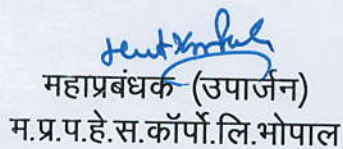 महाप्रबंधक (उपार्जन)
म.प्र.प.हे.स.कॉर्पो.लि.भोपाल